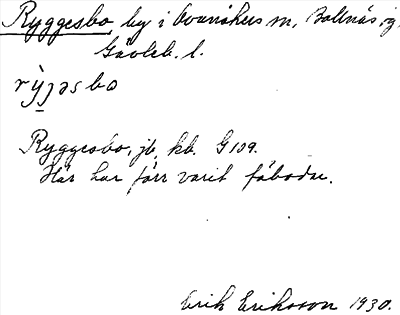 Ryggesbo by i Ovanåkers sn, Bollnäs, fg.
Gävleb. l.
rỳjəsbo
Ryggesbo, jb, kb. G 109.
Här har förr varit fäbodar.
Erik Eriksson 1930.